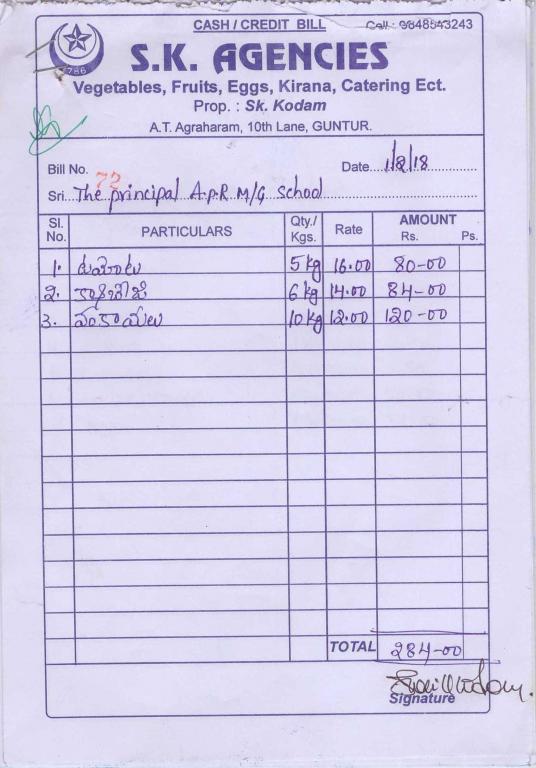 CASH / CREDIT BILL
Cell : 9848543243
786
S.K. AGENCIES
Vegetables, Fruits, Eggs, Kirana, Catering Ect.
Prop. : Sk. Kodam
A.T. Agraharam, 10th Lane, GUNTUR.
Bill No. 72
Date 1/8/18
Sri. The principal A.P.R M/G School
Sl. No. PARTICULARS Qty./ Kgs. Rate AMOUNT Rs. Ps.
1. టమోటలు 5 kg 16.00 80-00
2. 6 kg 14.00 84-00
3. వంకాయలు 10 kg 12.00 120-00
TOTAL 284-00
Signature